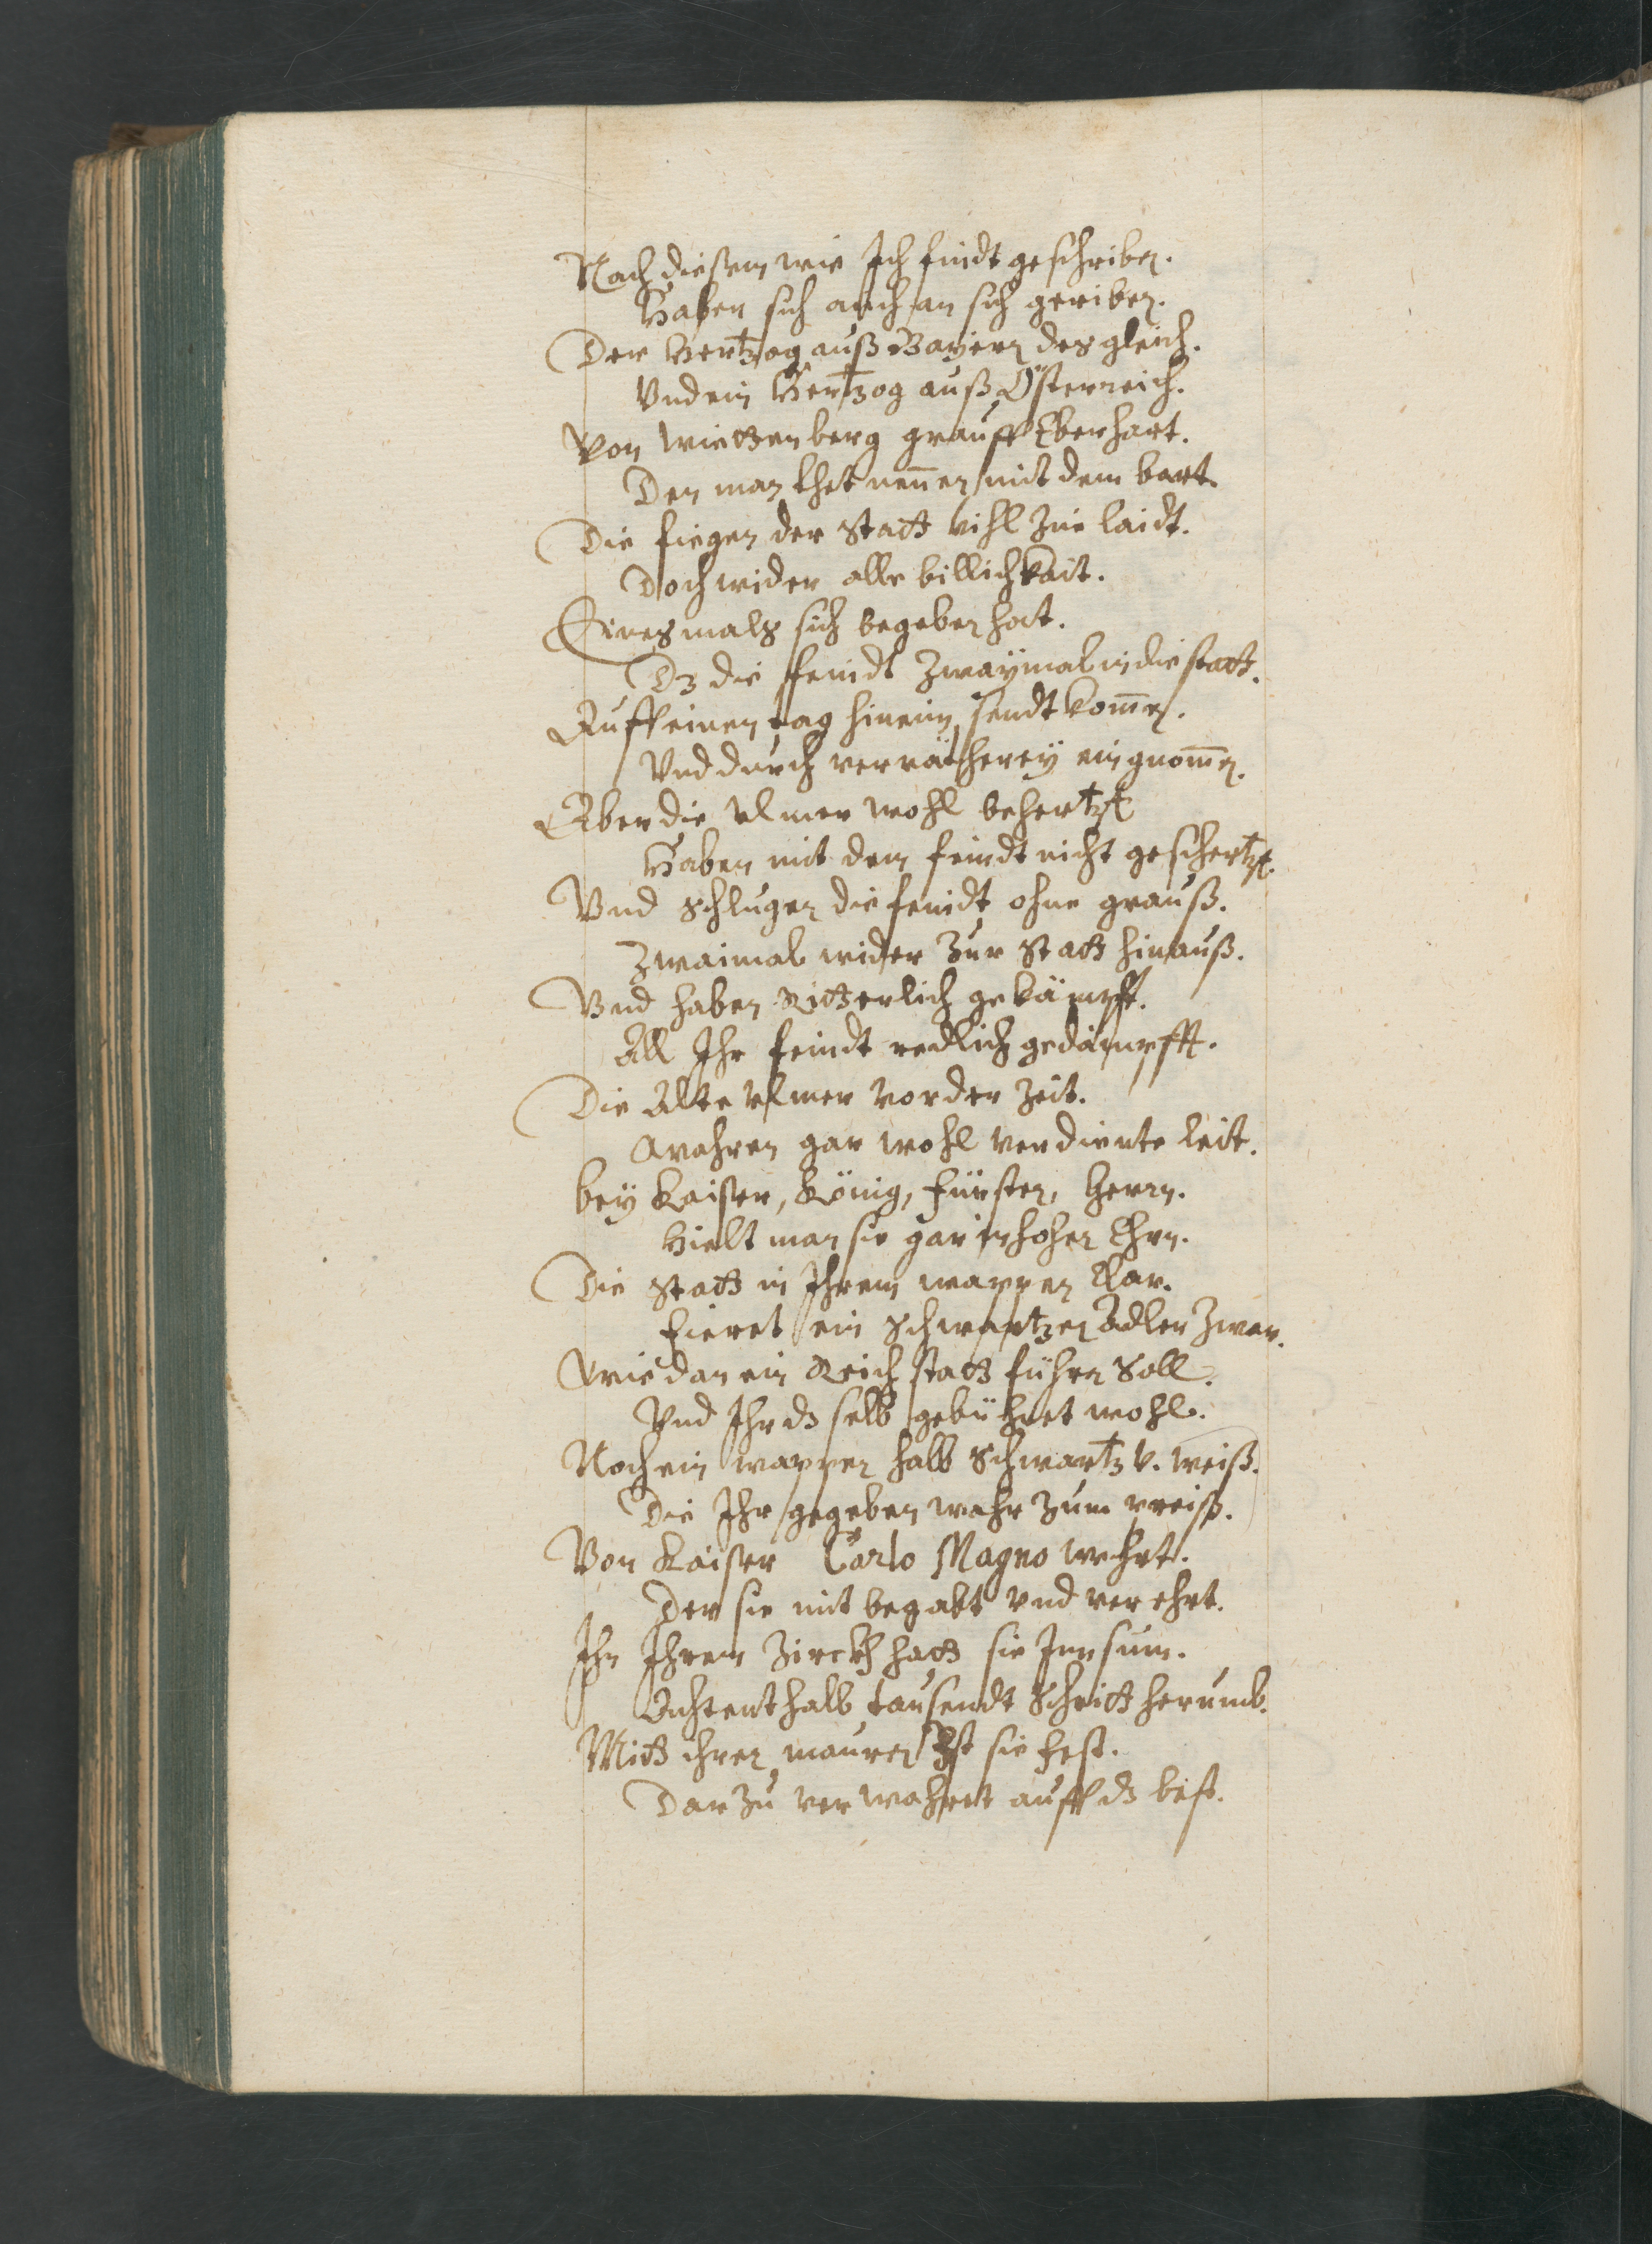 Nach dießem wie Ich findt geschriben.
Haben sich auch an sich geriben.
Der Hertzog auß Bayern desgleich.
Vnd ein Hertzog auß Österreich.
Von Wirttenberg grauff Eberhart.
Den man thet nennen mit dem bart.
Die fiegen der Statt vihl zue laidt.
Doch wider alle billichkait.
Einesmals sich begeben hat.
Dz die feindt zwaymal in die statt.
Auff einen tag hinein sendt kommen.
Vnd durch verrätherey eingnommen.
Aber die Vlmer wohl behertzt
Haben mit dem feindt nicht geschertzt.
Vnd schlugen die feindt ohne grauß.
Zwaimal wider zur Statt hinauß.
Vnd haben Ritterlich gekämpfft.
All Ihr feindt redlich gedämpfft.
Die Alte Vlmer vor der Zeit.
Wahren gar wohl verdiente leit.
bey Kaiser, König, Fürsten, Herrn.
Hielt man sie gar in hohen Ehrn.
Die Statt in Ihrem wappen klar.
Fieret ein Schwartzen Adler zwar.
Wie dan ein Reichstatt führn Soll.
Vnd Ihr dz selb gebühret wohl.
Noch ein wappen halb Schwartz v. weiß.
Die Ihr gegeben wahr zum preiß.
Von Kaiser Carlo Magno wehrt.
Der sie mit begabt vnd verehrt.
Ihn Ihrem Zirckh hatt sie Inn sum.
Achtenthalb tausendt Schritt herumb.
Mitt ihren mauren Ist sie fest.
Darzu verwahret auff dz best.